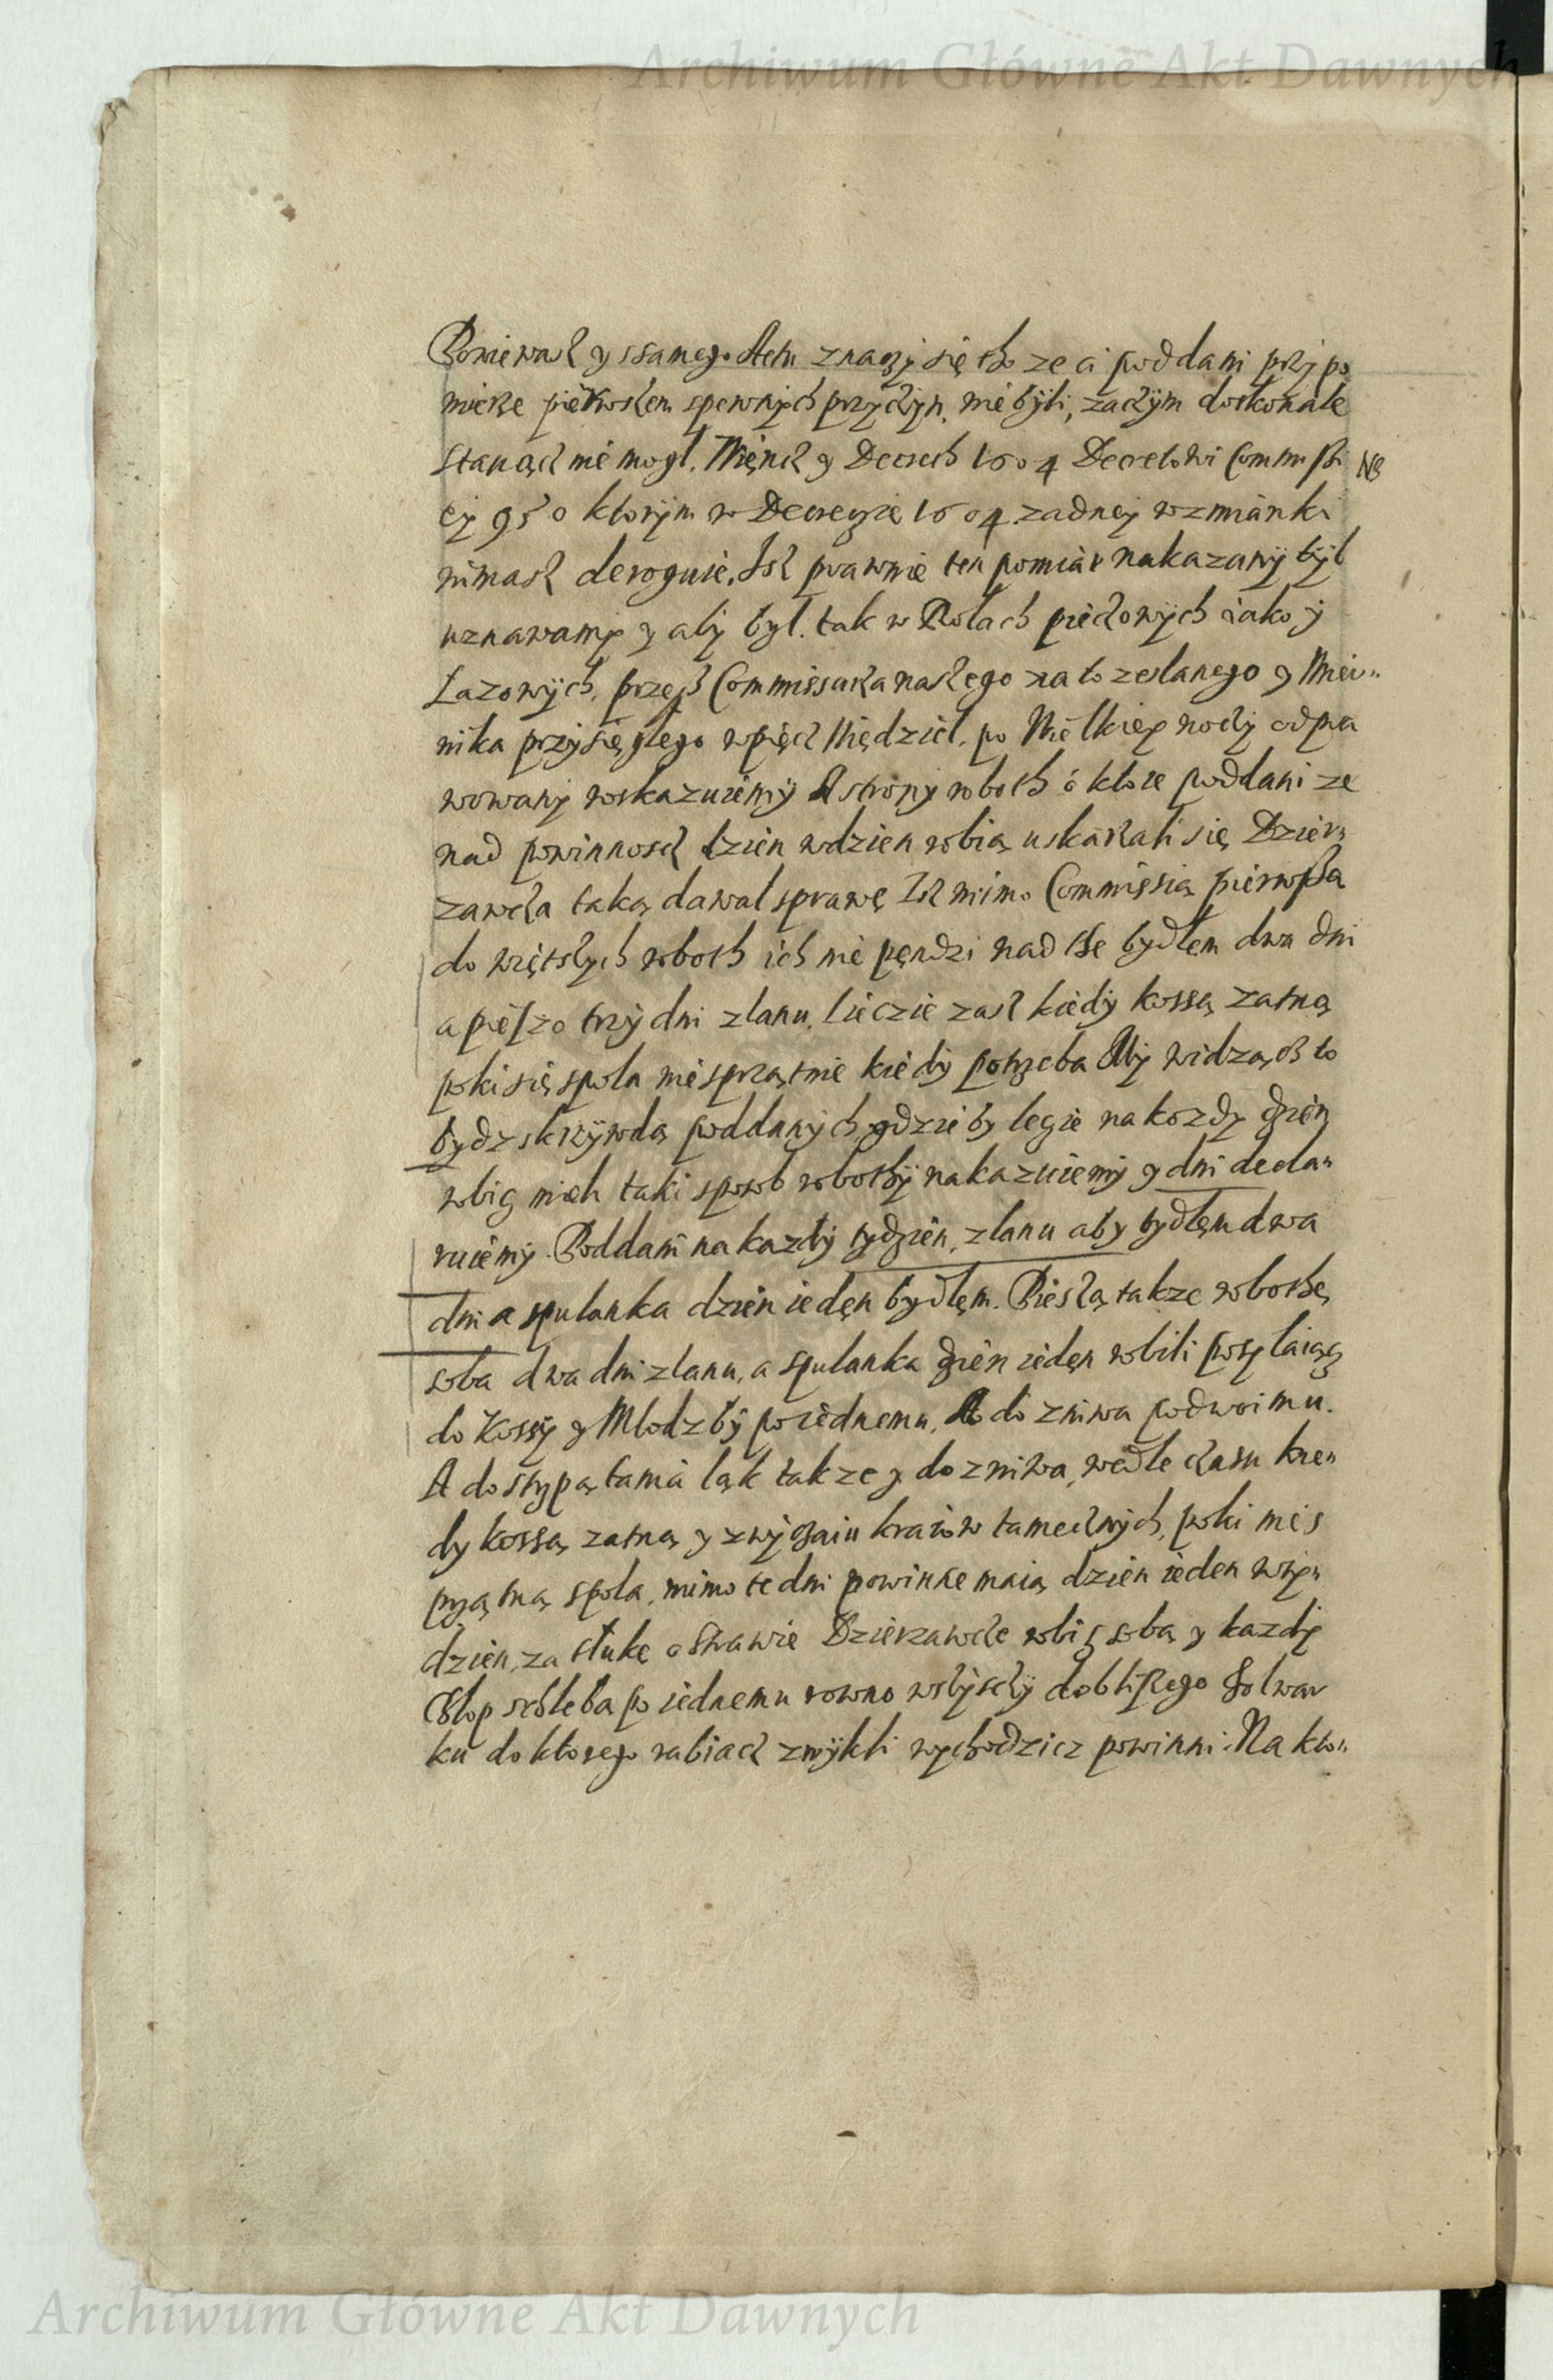 Archiwum Główne Akt Dawnych
Poniewasz y ssamego Actu znaczy się tho ze ci poddani przy po
mierze pierwszem spewnych przyczyn, nie byli, zaczym doskonale
stanącz nie mogl. Więncz y Decreth 1604 Decretowi Commissi NB
ey 95 o ktorym w Decrecie 1604 zadney wzmianki
nimasz deroguie. Isz prawnie ten pomiar nakazany był
uznawamy y aby był. tak w Rolach pieczowych iako y
Lazowych, przesz Commissarza naszego na to zesłanego y Mier„
nika przysięgłego wpięcz Niedziel, po Wielkiey nocy odpra
wowany wskazuiemy A strony roboth o ktore poddani ze
nad powinnoscz dzien wdzien robią uskarzali się Dzier„
zawcza taką dawal sprawę Isz mimo Commissią pierwszą
do większych roboth ich nie pęndzi nad the bydłem dwa dni
a pieszo trzy dni zlanu. Leczie zasz kiedy kossą zatną
poki się spola niesprzątnie kiedy potrzeba My widząch to
bydz skrzywdą poddanych gdzie by lecie na kozdy dzien
robicz mieli taki sposob robothy nakazuiemy y dni decla„
ruiemy. Poddani na kazdy tydzien, zlanu aby bydłem dwa
dni a spulanka dzien ieden bydłęm. Pieszą takze robothę
soba dwa dni zlanu, a spulanka dzien ieden robili posyłaiącz
do Kossy y Młodzby poiednemu, A do zniwa podwoimu.
A do sypątamia ląk takze y do zniwa, wedle czasu kie„
dy kossą zatną y zwyczaiu kraiow tamecznych, poki nies
przątną spola, mimo te dni powinne maią dzien ieden wtyn
dzien, za sztukę o strawie Dzierzawcze robicz sobą y kazdy
Chlop zchleba po iednemu rowno wszysczy doblisszego folwar
ku do ktorego rabiacz zwykli wychodzicz powinni. Na kto„
Archiwum Główne Akt Dawnych